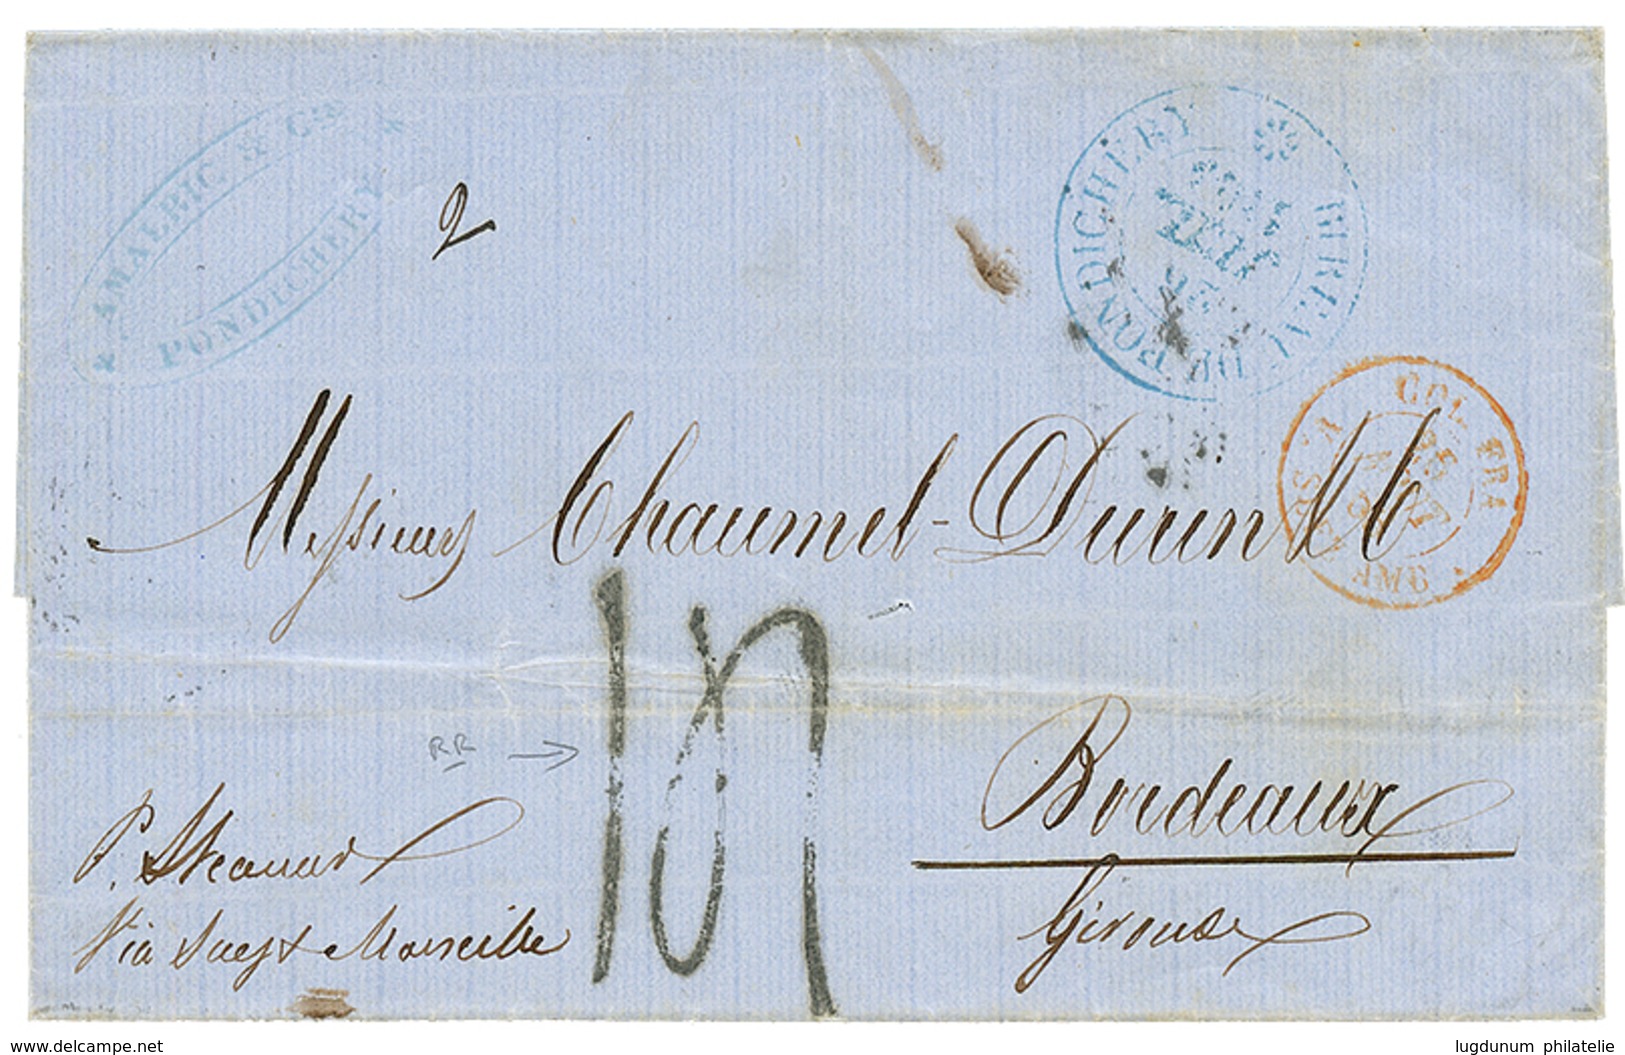 AMALRIC & Cie
PONDICHERY
2
BUREAU DE PONDICHERY
COL. FRA
PARIS A
AMB
Messieurs Chaumel-Durin & C
Bordeaux
Gironde
RR
P. Steamer
Via Suez & Marseille
www.delcampe.net
lugdunum philatelie